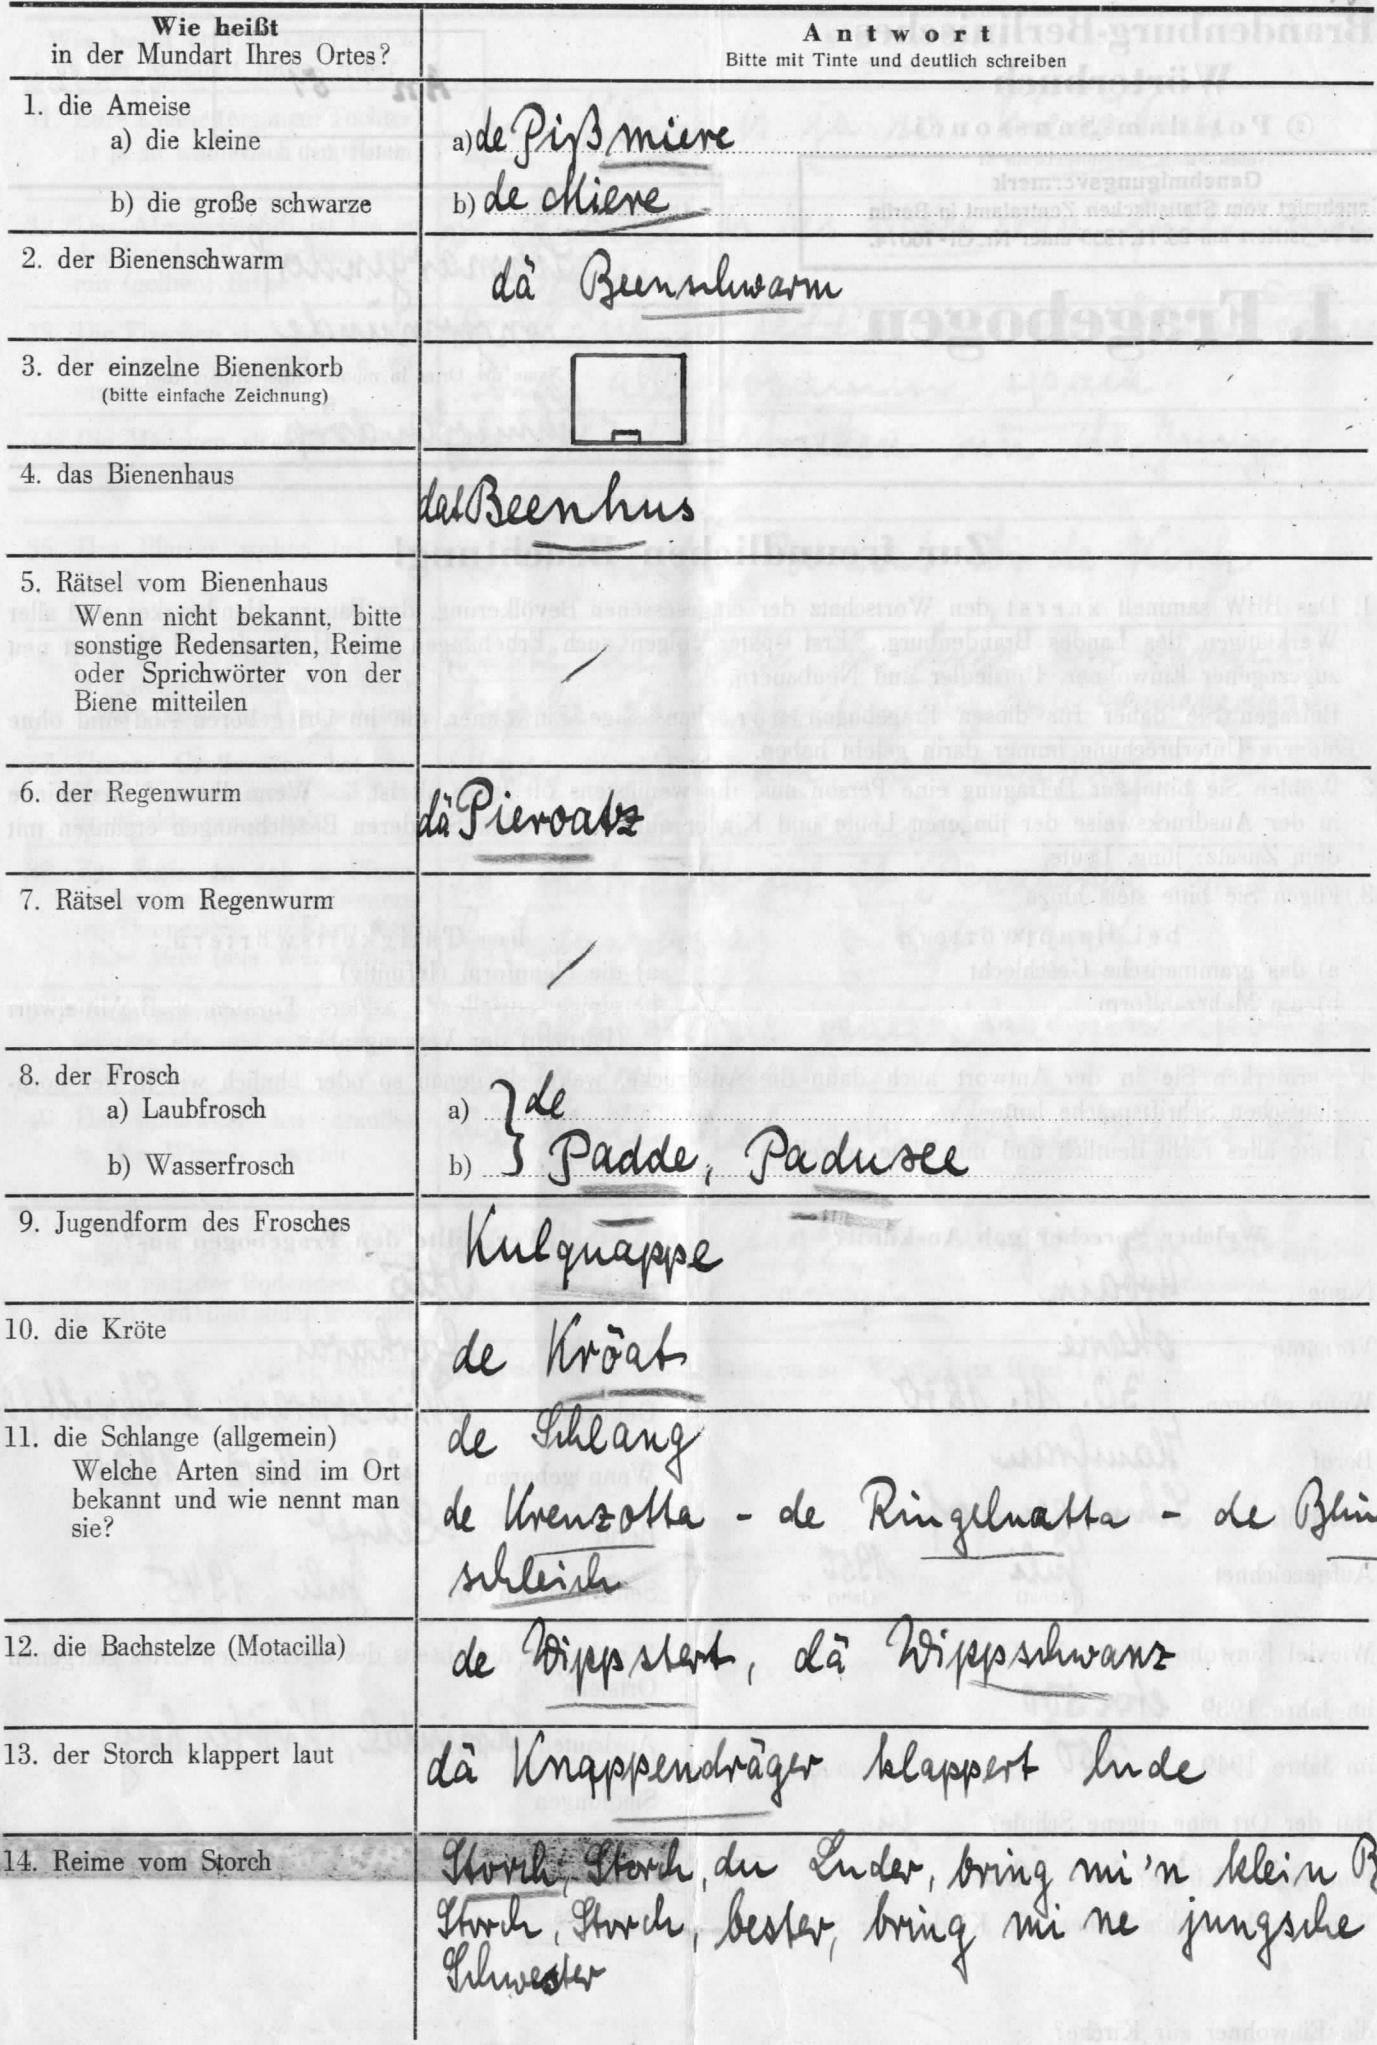 Wie heißt
in der Mundart Ihres Ortes?
Antwort
Bitte mit Tinte und deutlich schreiben
1. die Ameise
a) die kleine
a) de Pißmiere
b) die große schwarze
b) de Miere
2. der Bienenschwarm
dä Beenschwarm
3. der einzelne Bienenkorb
(bitte einfache Zeichnung)
4. das Bienenhaus
dat Beenhus
5. Rätsel vom Bienenhaus
Wenn nicht bekannt, bitte
sonstige Redensarten, Reime
oder Sprichwörter von der
Biene mitteilen
/
6. der Regenwurm
dä Pieroatz
7. Rätsel vom Regenwurm
/
8. der Frosch
a) Laubfrosch
a) } de
b) Wasserfrosch
b) Padde, Padusee
9. Jugendform des Frosches
Kulquappe
10. die Kröte
de Kröat
11. die Schlange (allgemein)
de Schlang
Welche Arten sind im Ort
bekannt und wie nennt man
sie?
de Kreuzotta - de Ringelnatta - de Blin
schleich
12. die Bachstelze (Motacilla)
de Wippstert, dä Wippschwanz
13. der Storch klappert laut
dä Knappendräger klappert lude
14. Reime vom Storch
Storch, Storch, du Luder, bring mi'n klein B
Storch, Storch, bester, bring mi ne jungsche
Schwester